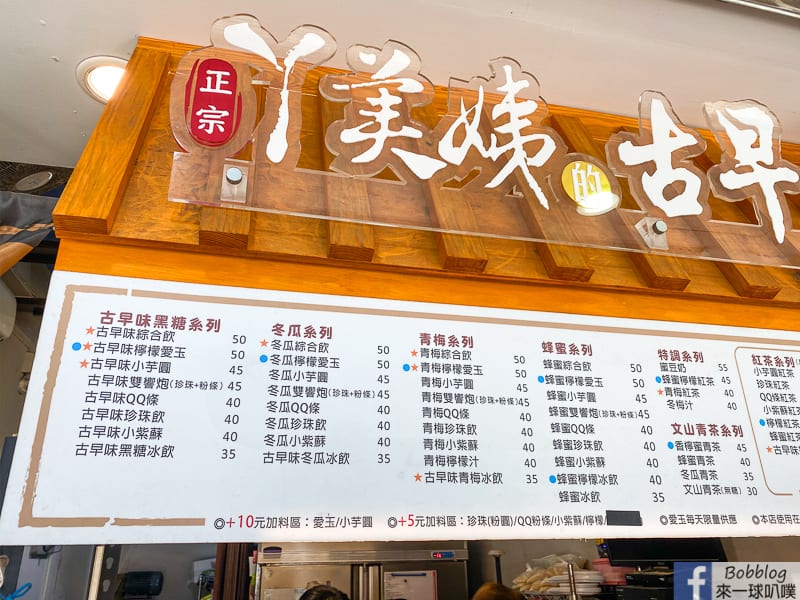 正宗
丫美姨的古早
古早味黑糖系列
★古早味綜合飲 50
●★古早味檸檬愛玉 50
★古早味小芋圓 45
古早味雙響炮(珍珠+粉條) 45
古早味QQ條 40
古早味珍珠飲 40
古早味小紫蘇 40
古早味黑糖冰飲 35
冬瓜系列
★冬瓜綜合飲 50
●冬瓜檸檬愛玉 50
冬瓜小芋圓 45
冬瓜雙響炮(珍珠+粉條) 45
冬瓜QQ條 40
冬瓜珍珠飲 40
冬瓜小紫蘇 40
古早味冬瓜冰飲 35
青梅系列
★青梅綜合飲 50
●★青梅檸檬愛玉 50
青梅小芋圓 45
青梅雙響炮(珍珠+粉條) 45
青梅QQ條 40
青梅珍珠飲 40
青梅小紫蘇 40
青梅檸檬汁 40
★古早味青梅冰飲 35
蜂蜜系列
蜂蜜綜合飲 50
●蜂蜜檸檬愛玉 50
蜂蜜小芋圓 45
蜂蜜雙響炮(珍珠+粉條) 45
蜂蜜QQ條 40
蜂蜜珍珠飲 40
蜂蜜小紫蘇 40
●蜂蜜檸檬冰飲 40
蜂蜜冰飲 35
特調系列
蜜豆奶 55
●蜂蜜檸檬紅茶 45
★青梅紅茶 40
冬梅汁 40
文山青茶系列
●香檸蜜青茶 45
蜂蜜青茶 40
冬瓜青茶 35
文山青茶(無糖) 30
紅茶系列
小芋圓紅茶
珍珠紅茶
QQ條紅茶
小紫蘇紅
●檸檬紅茶
蜂蜜紅茶
★古早味
◎+10元加料區：愛玉/小芋圓 ◎+5元加料區：珍珠(粉圓)/QQ粉條/小紫蘇/檸檬/ ◎愛玉每天限量供應 ◎本店使用在
Bobblog
來一球叭噗